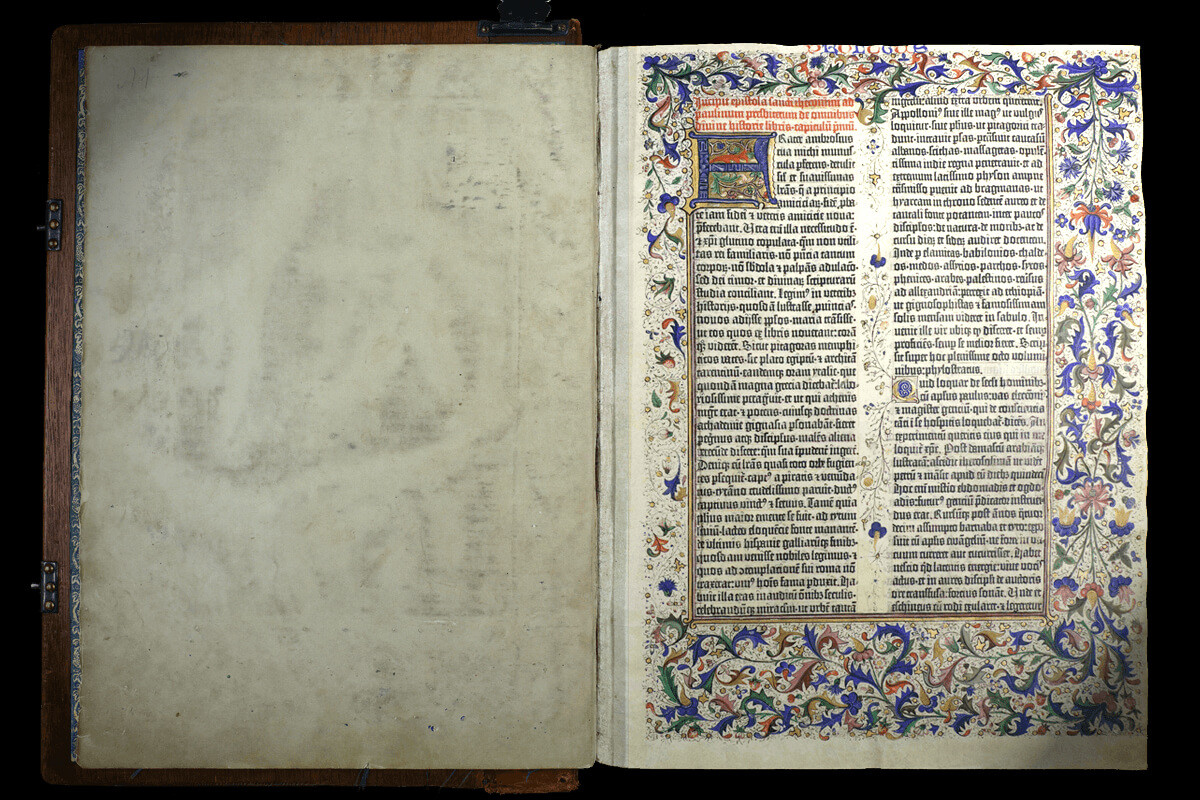 Incipit epistola sancti iheronimi ad
paulinum presbiterum de omnibus
diuine historie libris·capitulū p̄mū.
Frater ambrosius
tua michi munus-
cula pferens·detulit
sil̄ et suauissimas
lrās·q̄ a principio
amiciciaꝝ·fidē pba-
te iam fidei ⁊ veteris amicicie noua:
pferebant. Vera em̄ illa necessitudo ē·
⁊ xp̄i glutino copulata·qm̄ non vtili-
tas rei familiaris·nō pn̄cia tantum
corpoꝝ·nō sbdola ⁊ palpās adulaco·
sed dei timor·et diuinaꝝ scripturarum
studia conciliant. Legim⁹ in veterib⁹
historijs·quosdā lustrasse puincias·
nouos adijsse pplos·maria trāsisse·
ut eos quos ex libris nouerant: corā
q̄ꝫ viderēt. Sicut pitagoras memphi-
ticos vates·sic plato egiptū·⁊ architā
tarentinū·eandemq̄ꝫ oram ytalie·que
quondā magna grecia dicebat̄·labo-
riosissime peragᵉuit·et ut qui athenis
mgr̄ erat·⁊ potens·cuiusq̄ꝫ doctrinas
achademie gignasia psonabāt·fieret
peregrinus atq̄ꝫ discipulus·malēs aliena
verecūde discere: qm̄ sua īpudent̄ ingerere.
Deniq̄ꝫ cū lrās quasi toto orbe fugien-
tes psequit̄·capt⁹ a piratis ⁊ venūda-
tus·tyranno crudelissimo paruit·duct⁹
captiuus vinct⁹ ⁊ seruus. Tamē quia
phūs maior emente se fuit·ad tytum
liuiū·lacteo eloquēcie fonte manantē·
de vltimis hispanie galliarūq̄ꝫ finib⁹·
quosdam venisse nobiles legimus·⁊
quos ad cōtemplacionē sui roma nō
traxerat: uni⁹ hoīs fama pduxit. Ha-
buit illa etas inauditū om̄ib⁹ seculis·
celebrandūq̄ꝫ miraculū·ut vrbē tantā
ingressi: aliud extra vrbem quererent.
Appolloni⁹ siue ille mag⁹ ut vulg⁹
loquitur·siue phūs·ut pitagorici tra-
dunt·intrauit psas·ptrāsiuit caucasū
albanos·scithas·massagetas·opulē-
tissima indie regna penetrauit·et ad
extremum latissimo physon ampne
trāsmisso puenit ad bragmanas·ut
hyarcam in throno sedētē aureo et de
tantali fonte potantem·inter paucos
discipulos·de natura·de morib⁹·ac de
cursu dieꝝ et sideꝝ audiret docentem.
Inde p elamitas·babilonios·chalde-
os·medos·assyrios·parthos·syros·
phenices·arabes·palestinos·reūsus
ad allexandriā: perrexit ad ethiopiā·
ut gignosophistas ⁊ famosissimam
solis mensam videret in sabulo. In-
uenit ille vir ubiq̄ꝫ qd̄ disceret·et semp
proficiēs·semp se melior fieret. Scrip-
sit super hoc plenissime octo volumi-
nibus: phylostratus.
Quid loquar de secli hominib⁹·
cū apl̄us paulus: vas electōnis·
⁊ magister genciū·qui de consciencia
tāti ī se hospitis loquebat̄·dicēs. An
experimentū queritis eius qui in me
loquit̄ xp̄c. Post damascū arabiāq̄ꝫ
lustratā: ascendit iherosolimā ut vidēt
petrū ⁊ māsit apud eū dieb⁹ quindeci.
Hoc em̄ misterio ebdomadis et ogdo-
adis: futur⁹ genciū p̄dicator instruen-
dus erat. Rursūq̄ꝫ post ānos q̄tuor-
decim assumpto barnaba et tyto: expo-
suit cū aplīs ewāgeliū·ne forte in va-
cuum curreret aut cucurrisset. Habet
nescio qd̄ latentis energie: viue vocis
actus·et in aures discipuli de auctoris
ore transfusa: forcius sonat. Unde et
eschineus cū rodi exularet·⁊ legeretur